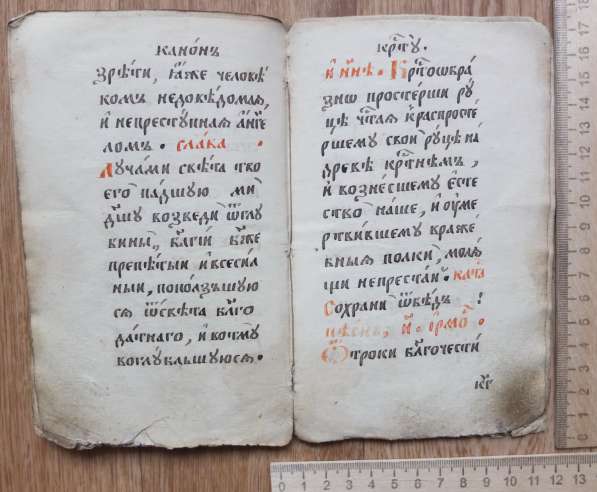 канѡ́нъ
зрѣ́ти, ꙗ҆́же человѣ́
комъ недовѣ́домаѧ,
и҆ непристꙋ́пнаѧ а҆́нге
ломъ. сла́ва .
Лꙋча́ми свѣ́та тво
его̀ па́дшꙋю ми
дш҃ꙋ возведѝ ѿглꙋ
бины̀, бл҃гі́й бж҃е
препѣ́тыи и҆ всеси́л
ныи, поползъшꙋю
сѧ ѿсвѣ́та бл҃го
да́тнаго, и҆ во тмꙋ̀
воглꙋ́бльшꙋюсѧ.
крⷭ҇тꙋ̀.
и҆ нн҃ѣ. Крⷭ҇тоѡбра́
знѡ просте́рши рꙋ́
цѣ чⷭ҇таѧ и҆ распросте́
ршемꙋ свои̑ рꙋ́цѣ на
древѣ̀ крⷭ҇тнѣмъ,
и҆ возне́сшемꙋ є҆сте
ство̀ на́ше, и҆ ᲂу҆ме
ртви́вшемꙋ вра́жѣ
выѧ полки̑, молѧ́
щи непреста́и. ката
Сохранѝ ѿбѣ́дъ
пѣ́снь, и҃. і҆рмо́.
Ѻ҆́троки бл҃гочести́